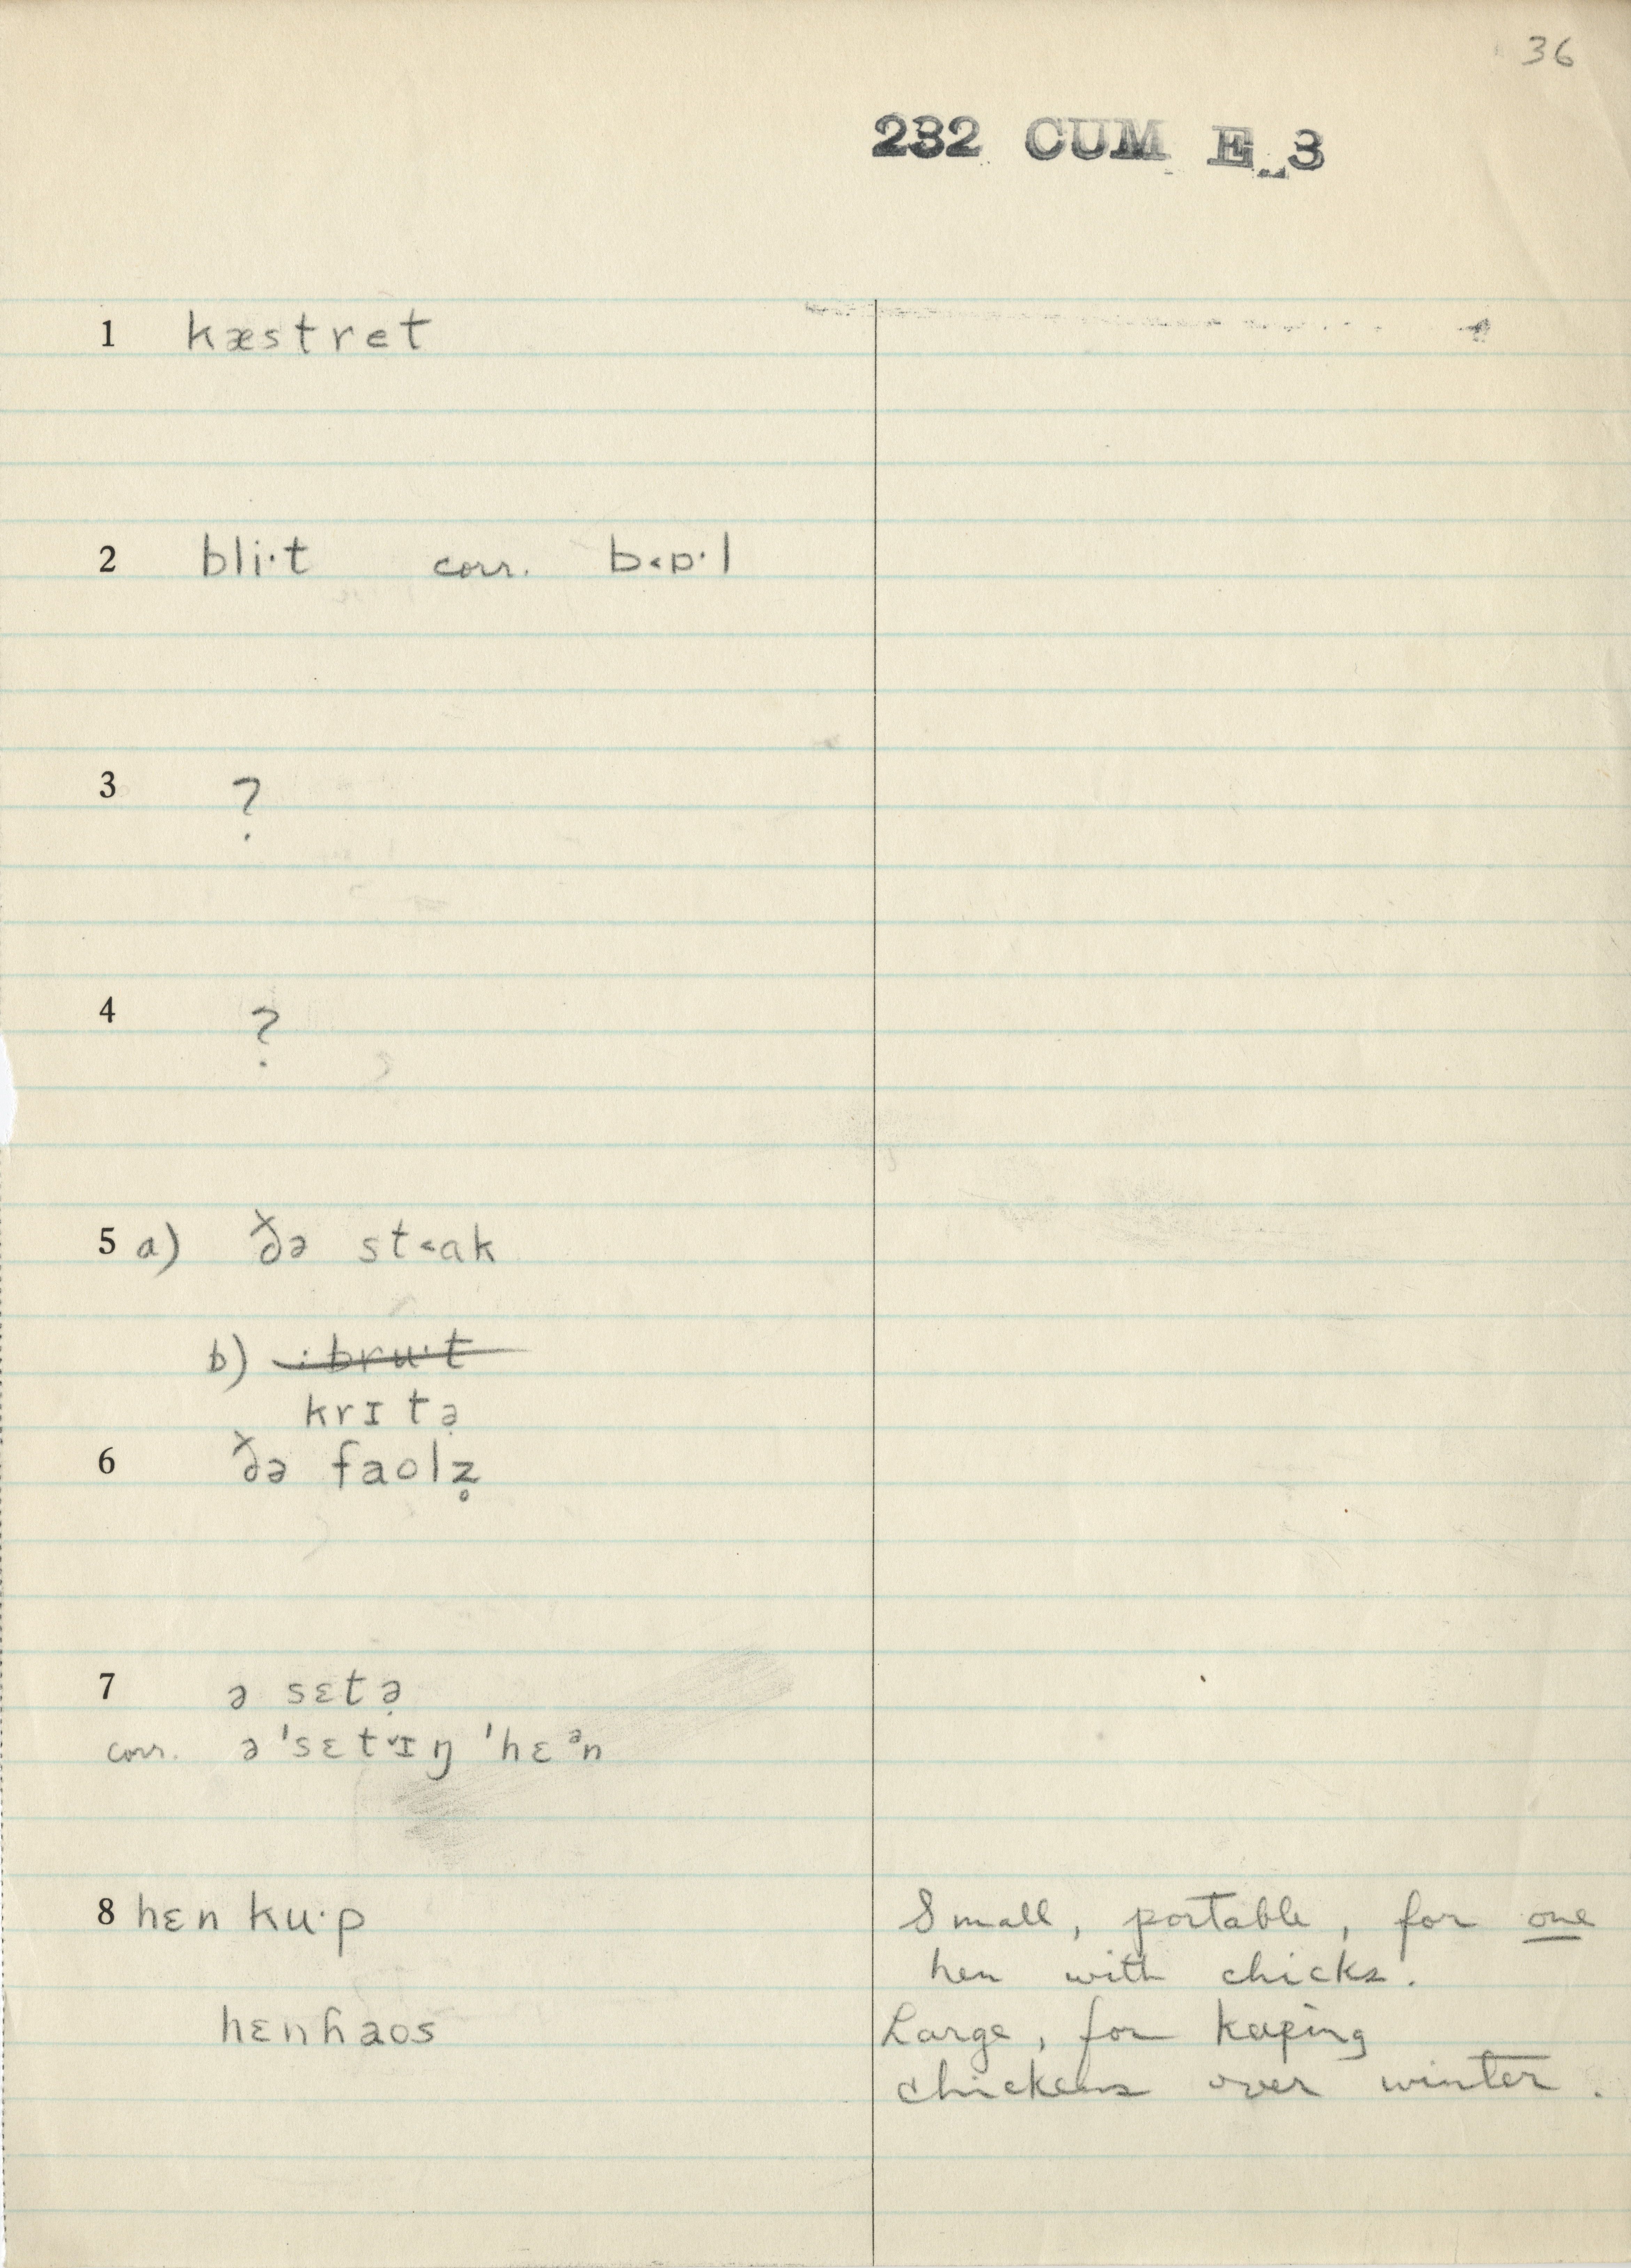 36
232 CUM E 3
1 kæstret
2 bli·t corr. b˂ɒ·l
3 ?
4 ?
5 a) ðə st˂ak
b) ·bru·t
krɪtə̣
6 ðə faolz̥
7 ə sɛtə̣
corr. ə 'sɛt˅ɪŋ 'hɛᵊn
8 hɛn ku·p Small, portable, for one
hen with chicks.
hɛnhaos Large, for keeping
chickens over winter.